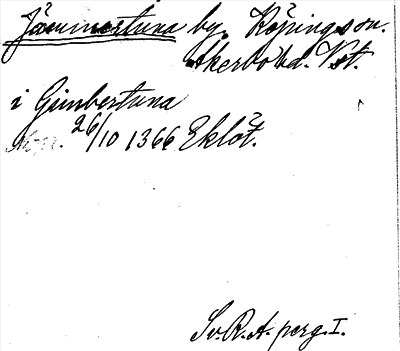 Jämmertuna by. Köpings sn.
Åkerbo hd. Vst.
i Gimbertuna
26/10 1366 Eklöt.
Sv. R. A. perg. I.